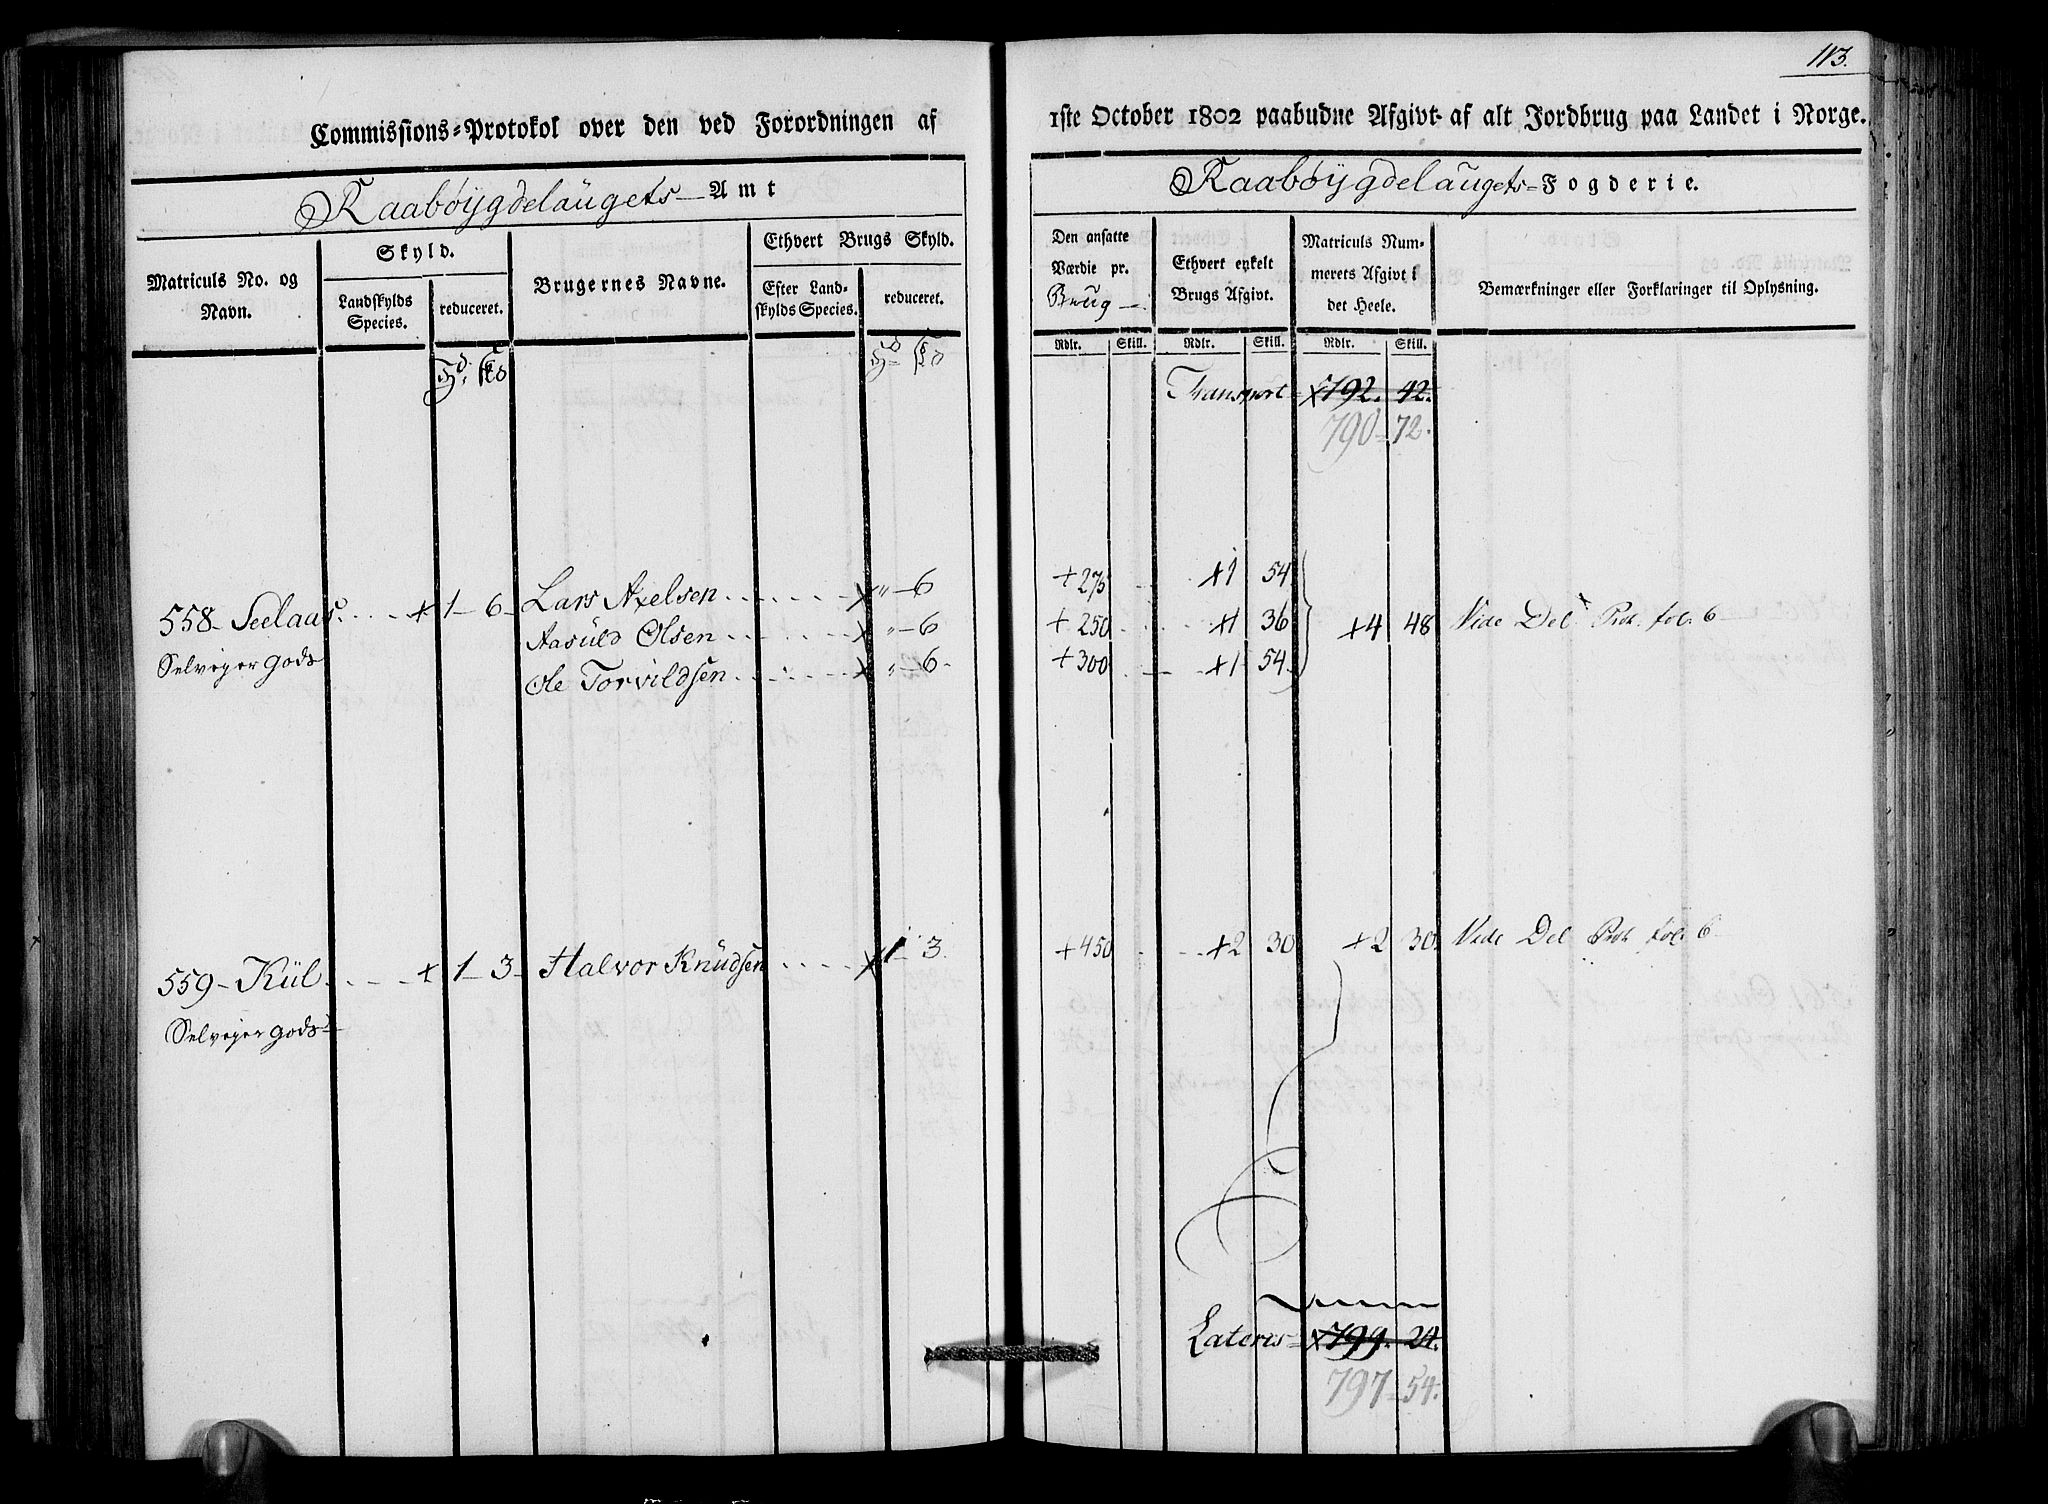 113.
Commissions-Protokol over den ved Forordningen af 1ste October 1802 paabudne Afgivt af alt Jordbrug paa Landet i Norge.
Raabøijgdelaugets Amt
Raabøijgdelaugets Fogderie.
Matriculs No. og Navn.
Skyld.
Landskylds Species.
reduceret.
Brugernes Navne.
Ethvert Brugs Skyld.
Efter Landskylds Species.
reduceret.
Den ansatte Værdie pr. Brug
Ethvert enkelt Brugs Afgivt.
Matriculs Nummerets Afgivt i det Heele.
Bemærkninger eller Forklaringer til Oplysning.
Rdlr. Skill. Rdlr. Skill. Rdlr. Skill.
Transport x792. 42.
790 - 72.
558 - Seelaas. + 1 - 6 - Lars Axelsen x " - 6 +275 +1 54
Selveger gods Aasuld Olsen x " - 6 +250 +1 36 +4 48 Vide Del Prot. fol. 6
Ole Torvildsen x " - 6 - +300 +1 54
559 - Kiil + 1 - 3 - Halvor Knudsen x 1 - 3. +450 +2 30 +2 30. Vide Del Prot. fol. 6
Selveger gods
Lateris x799. 24.
797 - 54.